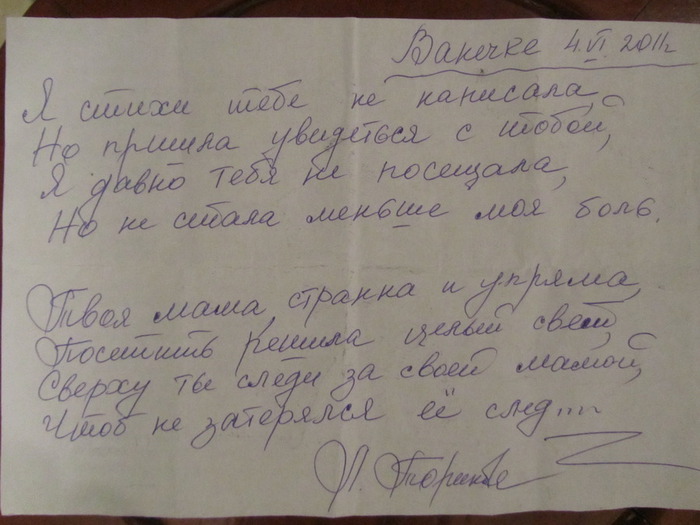 Ванечке 4.VI.2011г
Я стихи тебе не написала,
Но пришла увидеться с тобой,
Я давно тебя не посещала,
Но не стала меньше моя боль.
Твоя мама, странна и упряма,
Посетить решила целый свет,
Сверху ты следи за своей мамой,
Чтоб не затерялся её след...
Л.